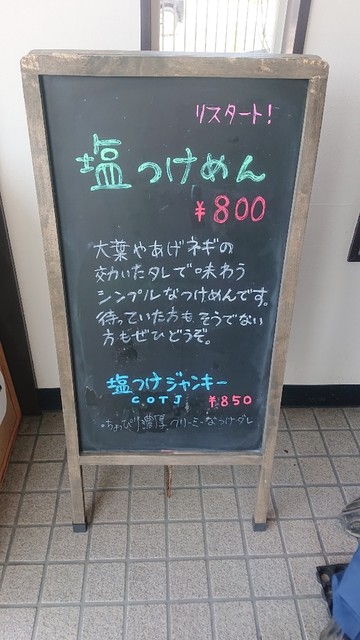 リスタート!
塩つけめん
¥800
大葉やあげネギの
効いたタレで味わう
シンプルなつけめんです。
待っていた方もそうでない
方もぜひどうぞ。
塩つけジャンキー
C.O.T.J ¥850
・ちょっぴり濃厚クリーミーなつけダレ